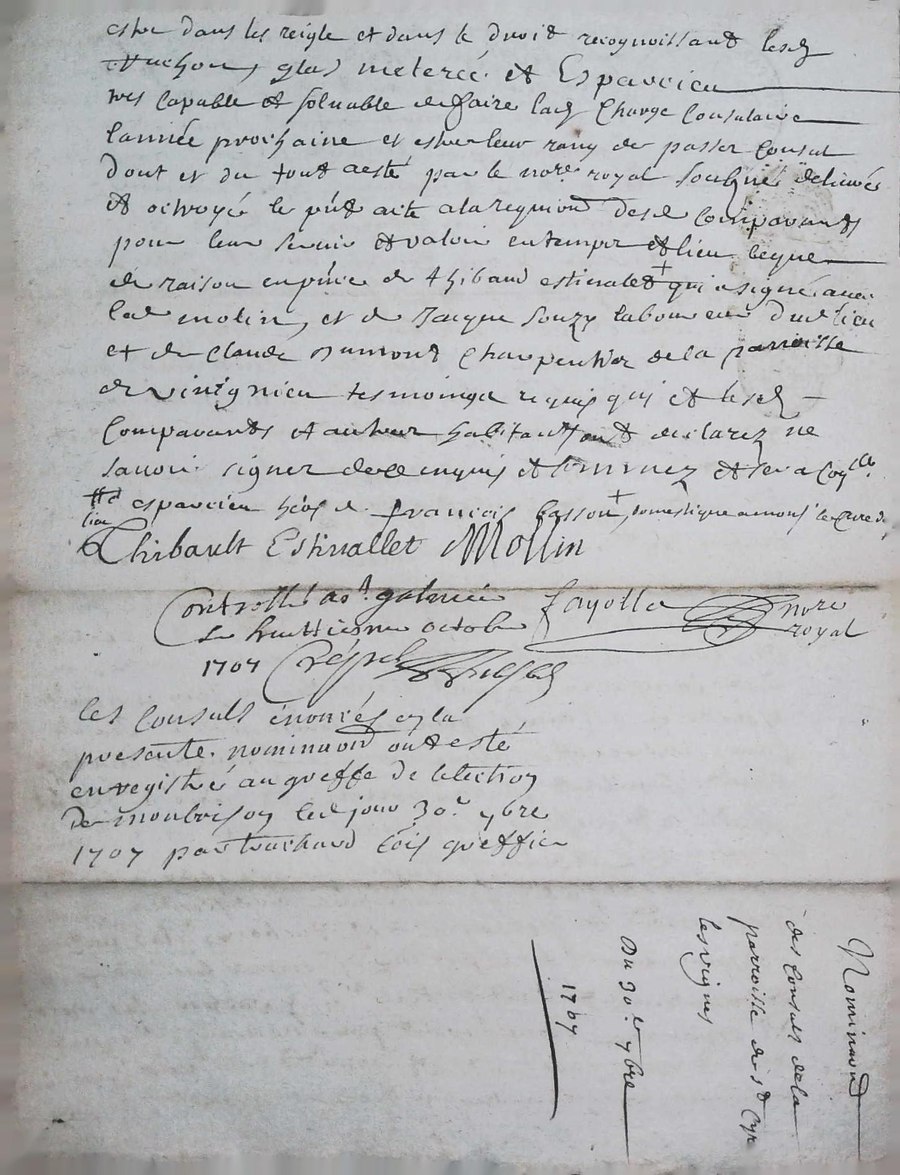 estre dans les reigle et dans le droit recognoissant lesd
glas meterée et Espavcieu
tres capable et soluable de faire lad Charge Consulaire
lannée prochaine et estre leur rang de passer Consul
Dont et du tout a esté par le nore royal soubzné deliurée
et octroyé le pnt acte a la requion desd Comparants
pour leur seruir et valoir en temps et lieu ceque
de raison en pnce de Thibaud estiuallet + qui a signé auec
led molin, et de Jacque souzy laboureur dud lieu
et de Claude Dumond Charpentier de la parroisse
de tesmoings requis qui et lesd
Comparants et autres habitants ont declarez ne
sauoir signer de ce enquis et et sera
espavcieu de francois basson + domestique a monsr le Cure de
lieu
Thibault Estiuallet Mollin
Controllé a st galmier fayolle nore
le huittiesme octobre royal
1707
les Consuls énoncés en la
presente nominaon ont esté
enregistré au greffe de lelection
de monbrison led jour 30e 7bre
1707 par commis greffier
Nominaon
des Consuls de la
parroisse de st Cyr
les vignes
Du 30e 7bre
1707